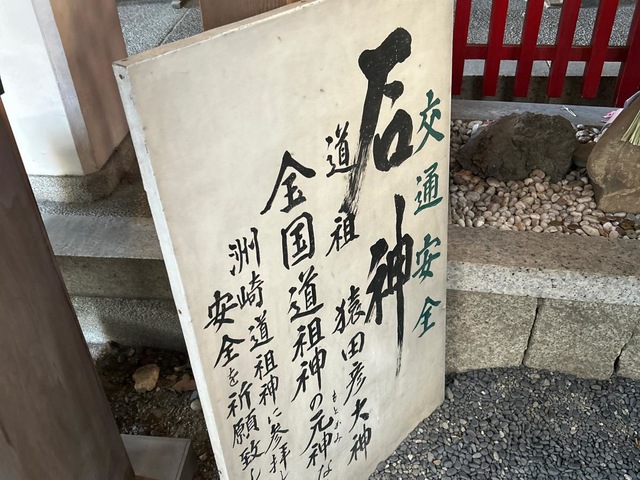 交通安全
石神
道祖 猿田彦大神
全国道祖神の元神な
もとかみ
洲崎道祖神に参拝し
安全を祈願致し